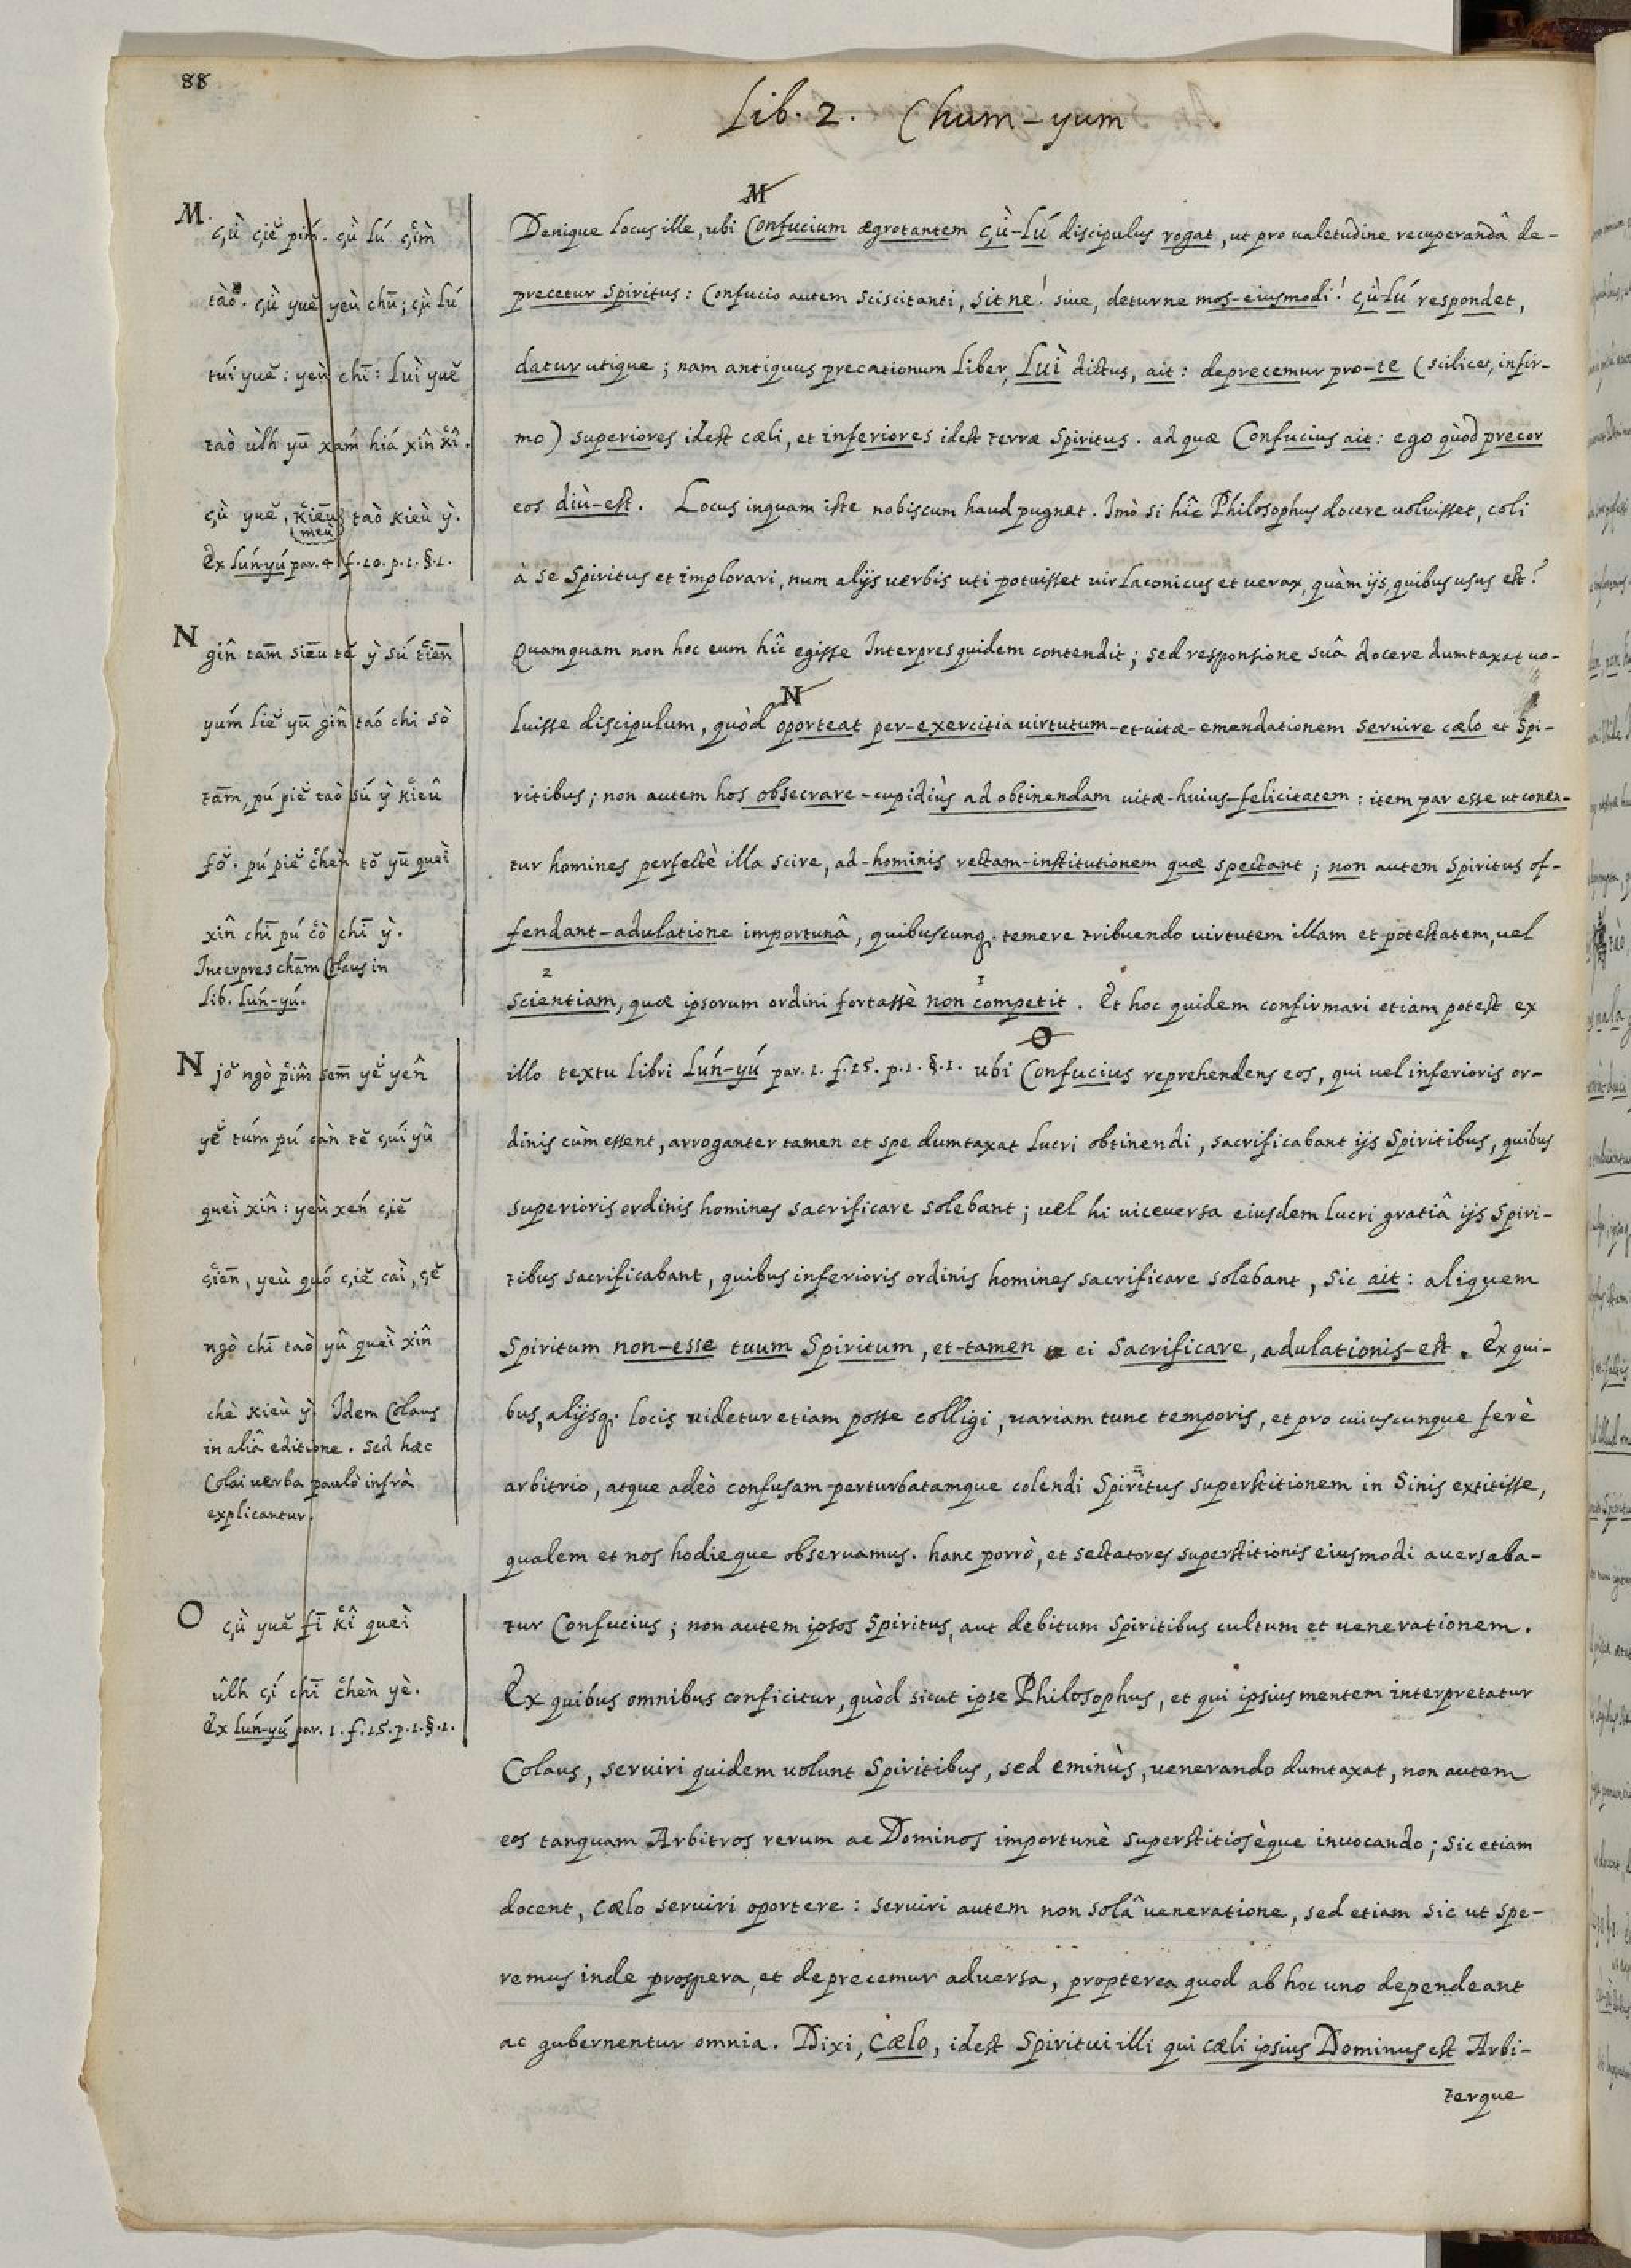 88
Lib. 2. Chum-yum
M.
çù çiĕ pím. çù lú çĩm
tào. çù yuĕ yeù chū; çù lú
túi yuĕ: yeù chī: Luì yuĕ
taò ùlh yū xám hiá xîn kî.
çù yuĕ, kiēu taò kieù ỳ.
meù
Ex Lún-yú par. 4 f. 10. p. 1. §. 1.
N
gîn tām siēu tĕ ỳ sú tiēn
yúm liĕ yū gîn taó chi sò
tām, pú piĕ taò sú ỳ kieû
fŏ. pú piĕ chèn tŏ yū queì
xîn chī pú cò chī ỳ.
Interpres chām Colaus in
Lib. Lún-yú.
N jŏ ngò pîm sēm yĕ yên
yĕ túm pú càn tĕ çuí yû
queì xîn: yeù xén çiĕ
çiēn, yeù quó çiĕ caì, çĕ
ngò chī taò yû queì xîn
chè kieù ỳ. Idem Colaus
in aliâ editione. sed hæc
Colai uerba paulò infrà
explicantur.
O çù yuĕ fī kî queì
ûlh çí chī chèn yè.
Ex Lún-yú par. 1. f. 15. p. 1. §. 1.
M
Denique Locus ille, ubi Confucium ægrotantem çù-Lú discipulus rogat, ut pro ualetudine recuperandâ de-
precetur Spiritus: Confucio autem sciscitanti, sit ne! siue, deturne mos-eiusmodi! çù-Lú respondet,
datur utique; nam antiquus precationum Liber, Luì dictus, ait: deprecemur pro-te (scilicet, infir-
mo) superiores idest cæli, et inferiores idest terræ Spiritus. ad quæ Confucius ait: ego quòd precor
eos diù-est. Locus inquam iste nobiscum haud pugnat. Imò si hîc Philosophus docere uoluisset, coli
à se Spiritus et implorari, num alijs uerbis uti potuisset uir Laconicus et uerax, quàm ijs, quibus usus est?
Quamquam non hoc eum hîc egisse Interpres quidem contendit; sed responsione suâ docere dumtaxat uo-
N
luisse discipulum, quòd oporteat per-exercitia uirtutum-et-uitæ-emendationem seruire cælo et Spi-
ritibus; non autem hos obsecrare-cupidiùs ad obtinendam uitæ-huius-felicitatem: item par esse ut conen-
tur homines perfectè illa scire, ad-hominis rectam-institutionem quæ spectant; non autem Spiritus of-
fendant-adulatione importunâ, quibuscunq; temere tribuendo uirtutem illam et potestatem, uel
2 1
scientiam, quæ ipsorum ordini fortassè non competit. Et hoc quidem confirmari etiam potest ex
O
illo textu libri Lún-yú par. 1. f. 15. p. 1. §. 1. ubi Confucius reprehendens eos, qui uel inferioris or-
dinis cùm essent, arroganter tamen et spe dumtaxat lucri obtinendi, sacrificabant ijs Spiritibus, quibus
superioris ordinis homines sacrificare solebant; uel hi uiceuersa eiusdem lucri gratiâ ijs Spiri-
tibus sacrificabant, quibus inferioris ordinis homines sacrificare solebant, sic ait: aliquem
Spiritum non-esse tuum Spiritum, et-tamen ei Sacrificare, adulationis-est. Ex qui-
bus, alijsq; locis uidetur etiam posse colligi, uariam tunc temporis, et pro cuiuscunque ferè
arbitrio, atque adeò confusam perturbatamque colendi Spiritus superstitionem in Sinis extitisse,
qualem et nos hodieque obseruamus. hanc porrò, et sectatores superstitionis eiusmodi auersaba-
tur Confucius; non autem ipsos Spiritus, aut debitum Spiritibus cultum et uenerationem.
Ex quibus omnibus conficitur, quòd sicut ipse Philosophus, et qui ipsius mentem interpretatur
Colaus, seruiri quidem uolunt Spiritibus, sed eminùs, uenerando dumtaxat, non autem
eos tanquam Arbitros rerum ac Dominos importunè superstitiosèque inuocando; sic etiam
docent, cælo seruiri oportere: seruiri autem non solâ ueneratione, sed etiam sic ut spe-
remus inde prospera, et deprecemur aduersa, propterea quod ab hoc uno dependeant
ac gubernentur omnia. Dixi, cælo, idest Spiritui illi qui cæli ipsius Dominus est Arbi-
terque